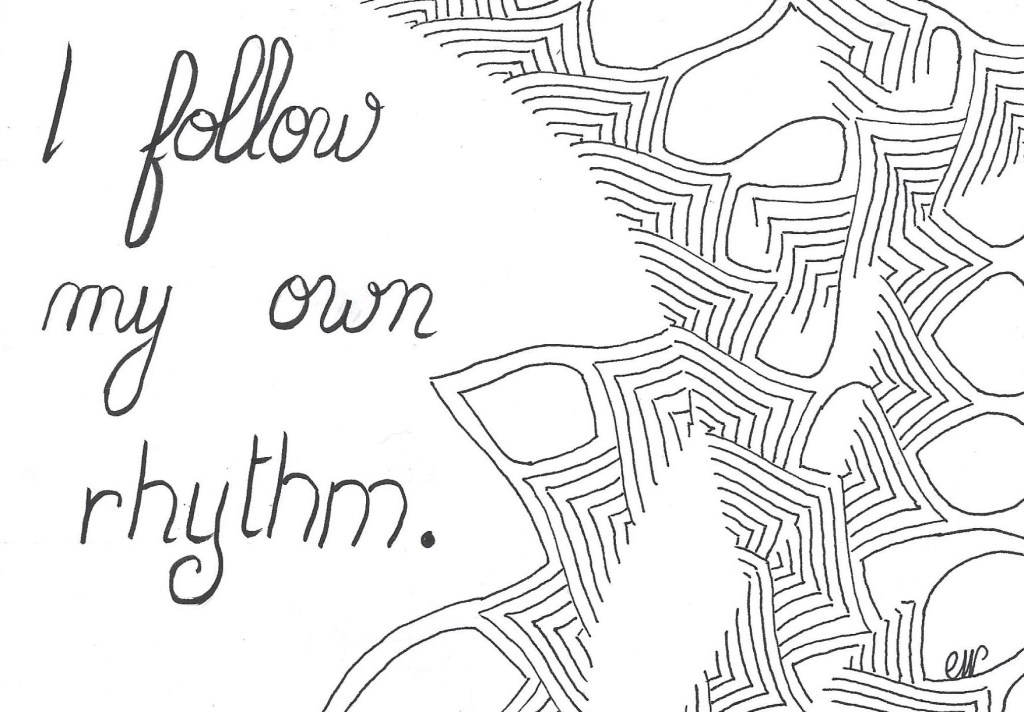 I follow
my own
rhythm.